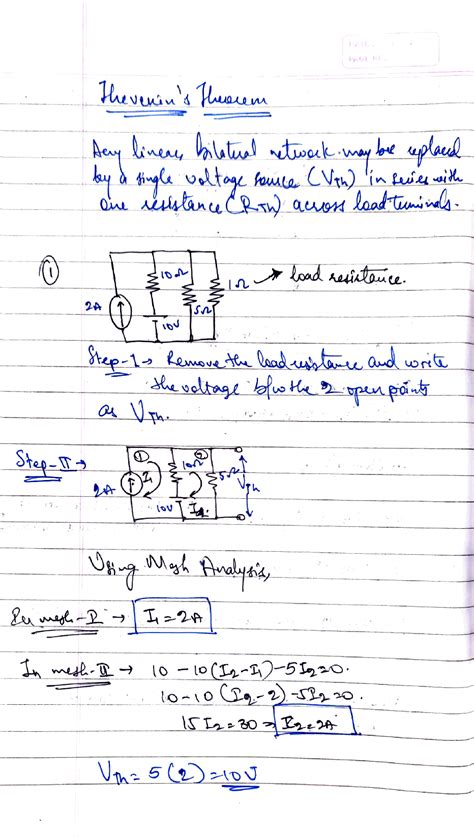 Thevenin's Theorem
Any linear, bilateral network may be replaced
by a single voltage source (VTh) in series with
one resistance (RTh) across load terminals.
① 10Ω 1Ω → load resistance.
2A 5Ω
10V
Step-1 → Remove the load resistance and write
the voltage b/w the 2 open points
as VTh.
Step-II → ① ②
10Ω 5Ω
2A I₁ VTh
10V I₂
Using Mesh Analysis,
In mesh-I → I₁ = 2A
In mesh-II → 10 - 10(I₂-I₁) - 5I₂ = 0.
10 - 10(I₂-2) - 5I₂ = 0.
15I₂ = 30 ⇒ I₂ = 2A
VTh = 5(2) = 10V